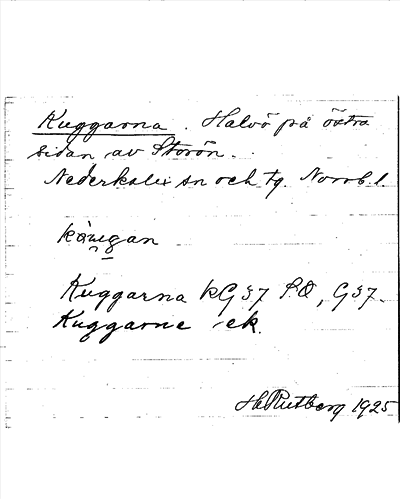 Kuggarna. Halvö på östra
sidan av Storön.
Nederkalix sn och tg. Norrb. l.
Kuggarna kG 37 S.O, G37.
Kuggarne ek.
H. Rutberg 1925